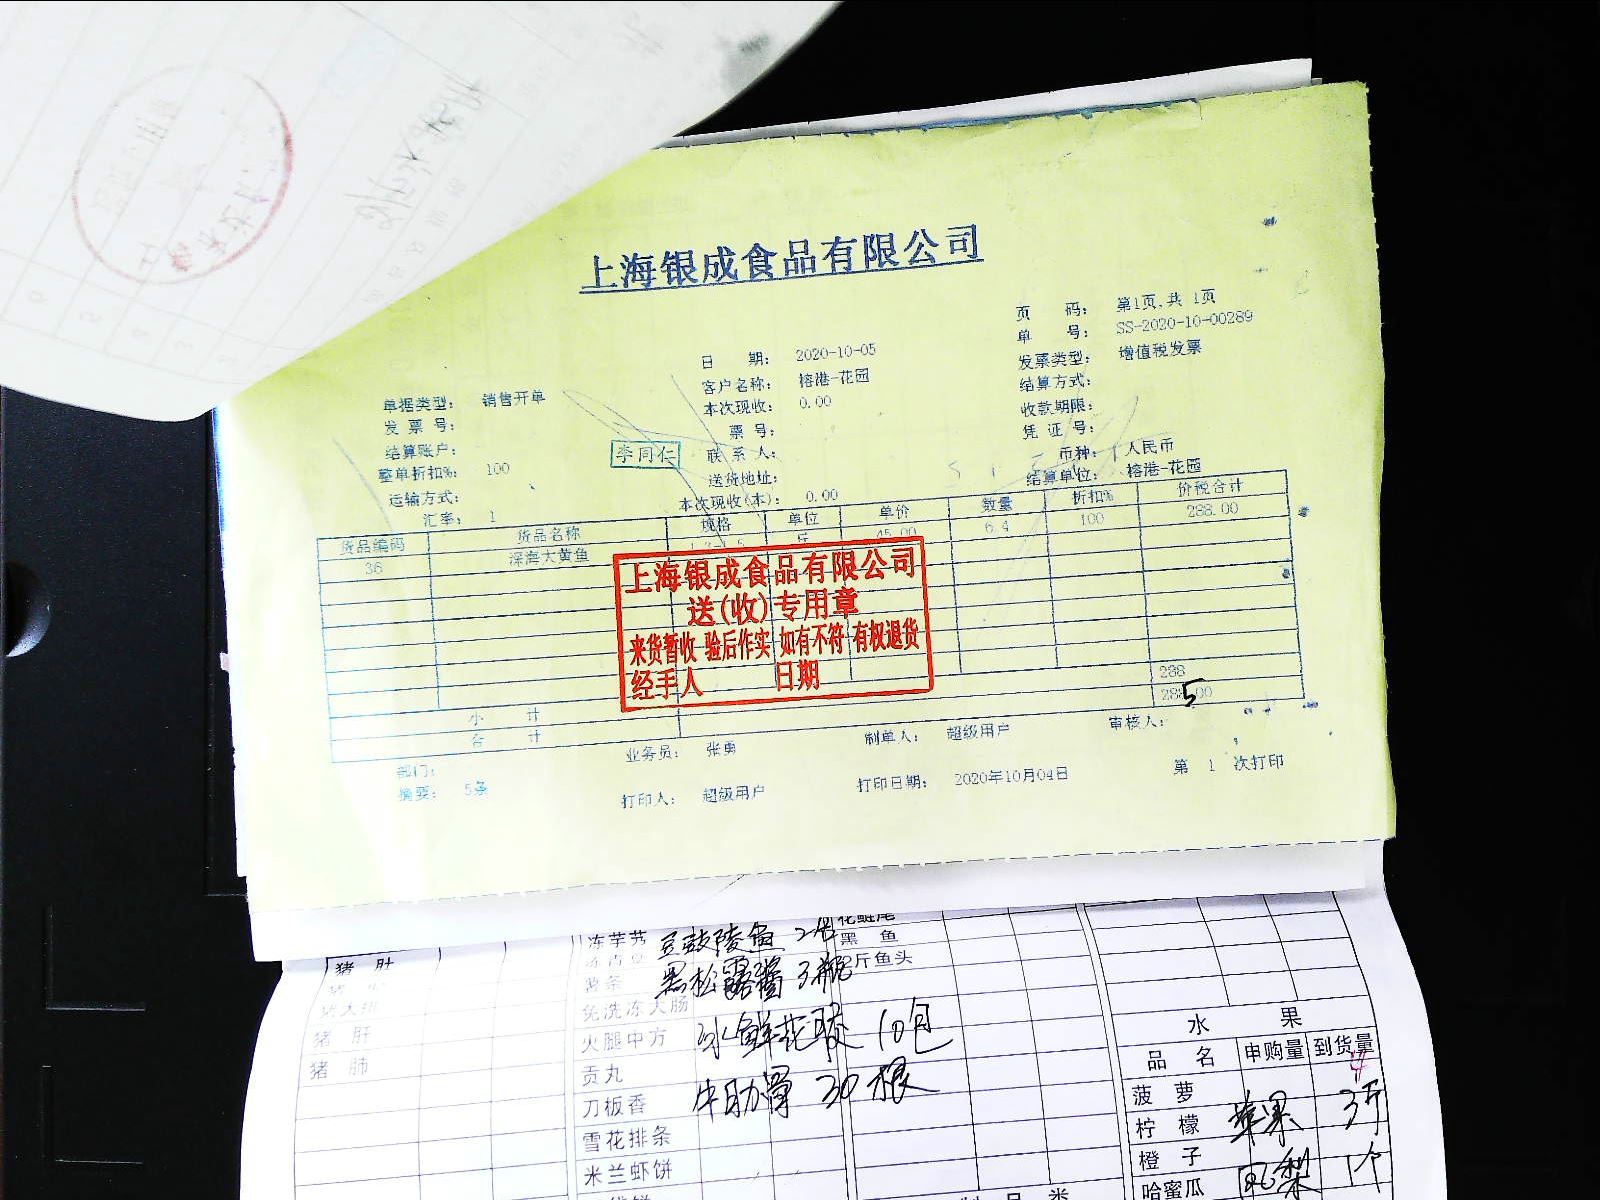 上海银成食品有限公司
页 码： 第1页,共 1页
单 号： SS-2020-10-00289
日 期： 2020-10-05
发票类型： 增值税发票
客户名称： 榕港-花园
结算方式：
单据类型： 销售开单
本次现收： 0.00
收款期限：
发 票 号：
票 号：
凭 证 号：
结算账户：
李同仁
联 系 人：
币种： 人民币
整单折扣%： 100
送货地址：
结算单位： 榕港-花园
运输方式：
本次现收(本)： 0.00
汇率： 1
货品编码 货品名称 规格 单位 单价 数量 折扣% 价税合计
36 深海大黄鱼 斤 45.00 6.4 100 288.00
上海银成食品有限公司
送(收)专用章
来货暂收 验后作实 如有不符 有权退货
经手人 日期
小 计 288
合 计 288.00
5
部门： 业务员： 张勇 制单人： 超级用户 审核人：
摘要： 5条 打印人： 超级用户 打印日期： 2020年10月04日 第 1 次打印
猪 肚
猪大排
猪 肝
猪 肺
冻芋艿
免洗冻大肠
火腿中方
贡丸
刀板香
雪花排条
米兰虾饼
豆豉陵鱼
黑松露酱 3瓶
冰鲜花胶 10包
牛肋骨 30根
花鲢尾
黑 鱼
斤鱼头
水 果
品 名 申购量 到货量
菠 萝
柠 檬
橙 子
哈蜜瓜
苹果 3斤
1个